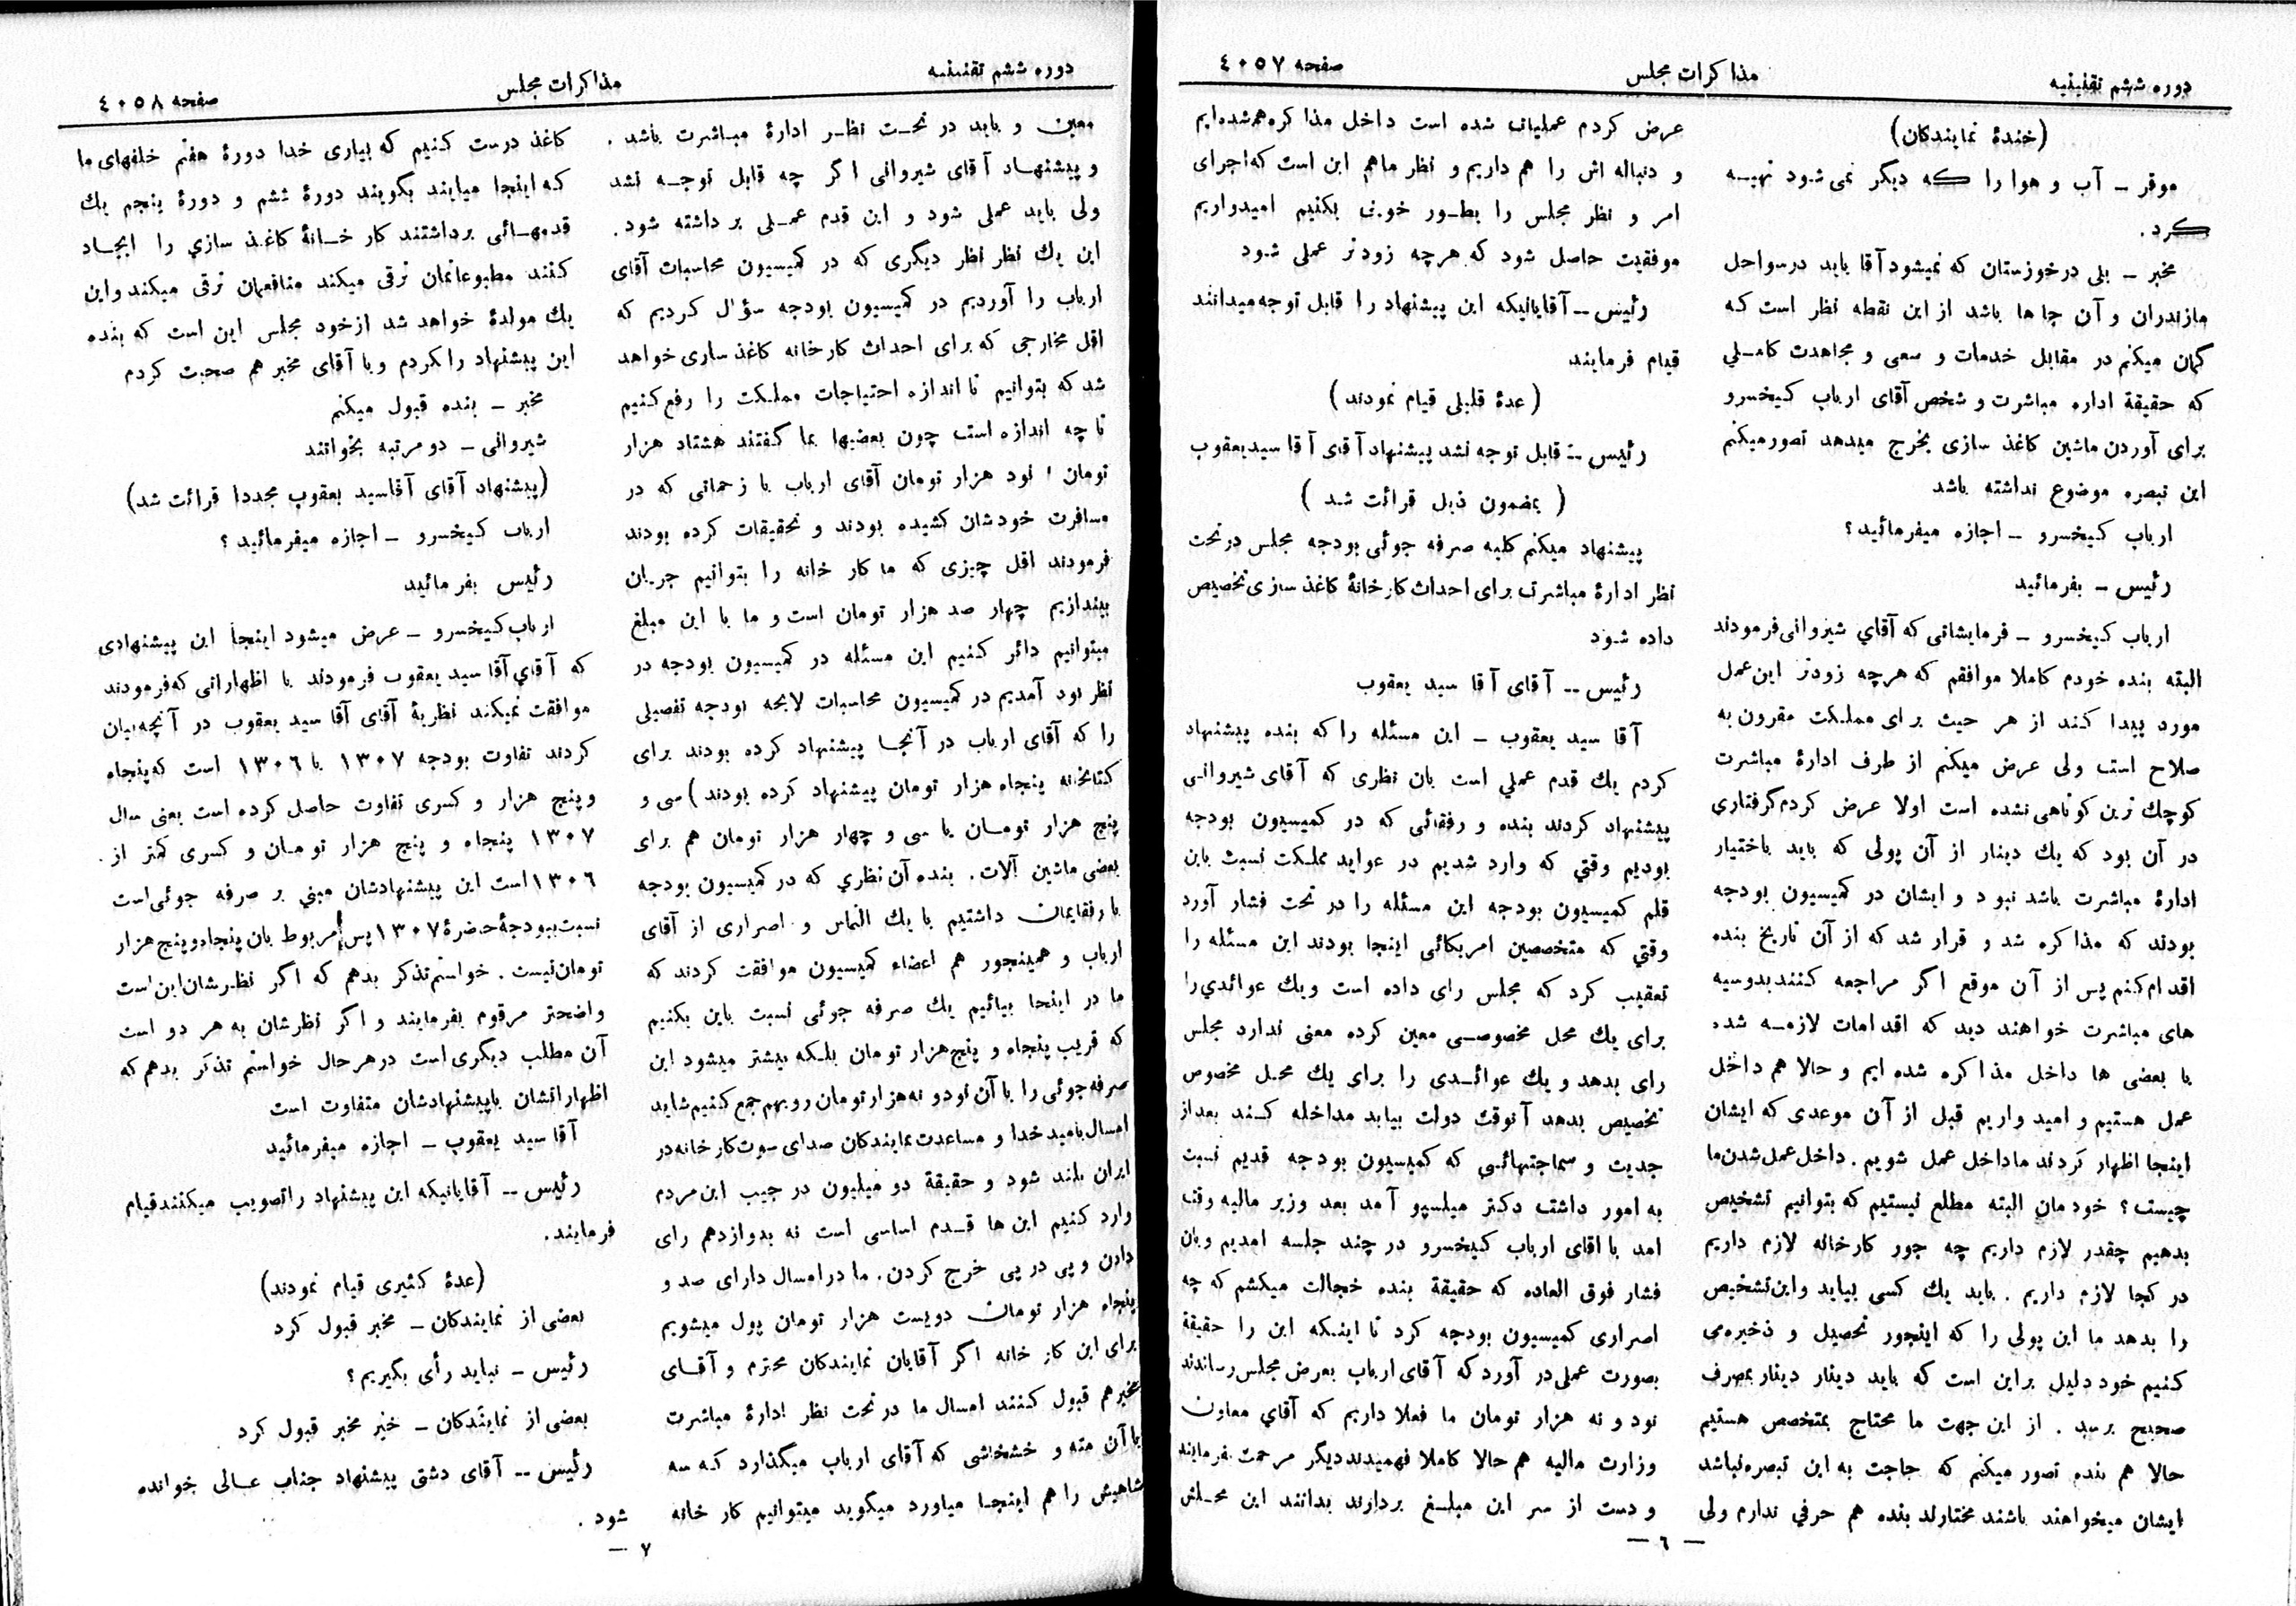 دوره ششم تقنینیه
مذاکرات مجلس
صفحه ٤٠٥٧
(خندهٔ نمایندگان)
موقر ـ آب و هوا را که دیگر نمی شود تهیه
کرد .
مخبر ـ بلی در خوزستان که نمیشود آقا باید در سواحل
مازندران و آن جا ها باشد از این نقطه نظر است که
گمان میکنم در مقابل خدمات و سعی و مجاهدت کاملی
که حقیقة اداره مباشرت و شخص آقای ارباب کیخسرو
برای آوردن ماشین کاغذ سازی بخرج میدهد تصور میکنم
این تبصره موضوع نداشته باشد
ارباب کیخسرو ـ اجازه میفرمائید ؟
رئیس ـ بفرمائید
ارباب کیخسرو ـ فرمایشاتی که آقاي شیروانی فرمودند
البته بنده خودم کاملا موافقم که هرچه زودتر این عمل
مورد پیدا کند از هر حیث برای مملکت مقرون به
صلاح است ولی عرض میکنم از طرف ادارهٔ مباشرت
کوچك ترین کوتاهی نشده است اولا عرض کردم گرفتاري
در آن بود که یك دینار از آن پولی که باید باختیار
ادارهٔ مباشرت باشد نبود و ایشان در کمیسیون بودجه
بودند که مذاکره شد و قرار شد که از آن تاریخ بنده
اقدام کنم پس از آن موقع اگر مراجعه کنند بدوسیه
های مباشرت خواهند دید که اقدامات لازمه شده
با بعضی ها داخل مذاکره شده ایم و حالا هم داخل
عمل هستیم و امید واریم قبل از آن موعدی که ایشان
اینجا اظهار کردند ما داخل عمل شویم . داخل عمل شدن ما
چیست ؟ خودمان البته مطلع نیستیم که بتوانیم تشخیص
بدهیم چقدر لازم داریم چه جور کارخانه لازم داریم
در کجا لازم داریم . باید یك کسی بیاید و این تشخیص
را بدهد ما این پولی را که اینجور تحصیل و ذخیره می
کنیم خود دلیل بر این است که باید دینار دینار بمصرف
صحیح برسد . از این جهت ما محتاج بمتخصص هستیم
حالا هم بنده تصور میکنم که حاجت به این تبصره نباشد
ایشان میخواهند باشند مختارند بنده هم حرفي ندارم ولی
عرض کردم عملیات شده است داخل مذاکره هم شده ایم
و دنباله اش را هم داریم و نظر ماهم این است که اجرای
امر و نظر مجلس را بطور خوبی بکنیم امیدواریم
موفقیت حاصل شود که هرچه زودتر عملی شود
رئیس ـ آقایانیکه این پیشنهاد را قابل توجه میدانند
قیام فرمایند
(عدهٔ قلیلی قیام نمودند)
رئیس ـ قابل توجه نشد پیشنهاد آقای آقا سید یعقوب
(بمضمون ذیل قرائت شد)
پیشنهاد میکنم کلیه صرفه جوئی بودجه مجلس در تحت
نظر ادارهٔ مباشرت برای احداث کارخانهٔ کاغذ سازی تخصیص
داده شود
رئیس ـ آقای آقا سید یعقوب
آقا سید یعقوب ـ این مسئله را که بنده پیشنهاد
کردم یك قدم عملي است بان نظری که آقای شیروانی
پیشنهاد کردند بنده و رفقائی که در کمیسیون بودجه
بودیم وقتي که وارد شدیم در عواید مملکت نسبت باین
قلم کمیسیون بودجه این مسئله را در تحت فشار آورد
وقتي که متخصصین امریکائی اینجا بودند این مسئله را
تعقیب کرد که مجلس رای داده است و یك عوائدي را
برای یك محل مخصوصی معین کرده معنی ندارد مجلس
رای بدهد و یك عوائدی را برای یك محل مخصوص
تخصیص بدهد آنوقت دولت بیاید مداخله کند بعد از
جدیت و سماجتهائی که کمیسیون بودجه قدیم نسبت
به امور داشت دکتر میلسپو آمد بعد وزیر مالیه رفت
امد با اقای ارباب کیخسرو در چند جلسه امدیم و بان
فشار فوق العاده که حقیقة بنده خجالت میکشم که چه
اصراری کمیسیون بودجه کرد تا اینکه این را حقیقة
بصورت عملی در آورد که آقای ارباب بعرض مجلس رساندند
نود و نه هزار تومان ما فعلا داریم که آقاي معاون
وزارت مالیه هم حالا کاملا فهمیدند دیگر مرحمت بفرمایند
و دست از سر این مبلغ بردارند بدانند این محلش
— ٦ —
دوره ششم تقنینیه
مذاکرات مجلس
صفحه ٤٠٥٨
معین و باید در تحت نظر ادارهٔ مباشرت باشد .
و پیشنهاد آقای شیروانی اگر چه قابل توجه نشد
ولی باید عملی شود و این قدم عملی برداشته شود .
این یك نظر نظر دیگری که در کمیسیون محاسبات آقای
ارباب را آوردیم در کمیسیون بودجه سؤال کردیم که
اقل مخارجی که برای احداث کارخانه کاغذ سازی خواهد
شد که بتوانیم تا اندازه احتیاجات مملکت را رفع کنیم
تا چه اندازه است چون بعضیها بما گفتند هشتاد هزار
تومان ، نود هزار تومان آقای ارباب با زحماتی که در
مسافرت خودشان کشیده بودند و تحقیقات کرده بودند
فرمودند اقل چیزی که ما کار خانه را بتوانیم جریان
بیندازیم چهار صد هزار تومان است و ما با این مبلغ
میتوانیم دائر کنیم این مسئله در کمیسیون بودجه در
نظر بود آمدیم در کمیسیون محاسبات لایحه بودجه تفصیلی
را که آقای ارباب در آنجا پیشنهاد کرده بودند برای
کتابخانه پنجاه هزار تومان پیشنهاد کرده بودند) سی و
پنج هزار تومان یا سی و چهار هزار تومان هم برای
بعضی ماشین آلات . بنده آن نظري که در کمیسیون بودجه
با رفقایمان داشتیم با یك التماس و اصراری از آقای
ارباب و همینجور هم اعضاء کمیسیون موافقت کردند که
ما در اینجا بیائیم یك صرفه جوئی نسبت باین بکنیم
که قریب پنجاه و پنج هزار تومان بلکه بیشتر میشود این
صرفه جوئی را با آن نود و نه هزار تومان رویهم جمع کنیم شاید
امسال بامید خدا و مساعدت نمایندکان صدای سوت کارخانه در
ایران بلند شود و حقیقة دو میلیون در جیب این مردم
وارد کنیم این ها قدم اساسی است نه بدوازدهم رای
دادن و پی در پی خرج کردن . ما در امسال دارای صد و
پنجاه هزار تومان دویست هزار تومان پول میشویم
برای این کار خانه اگر آقایان نمایندکان محترم و آقای
مخبر هم قبول کنند امسال ما در تحت نظر ادارهٔ مباشرت
با آن مته و خشخاشی که آقای ارباب میگذارد که سه
شاهیش را هم اینجا میاورد میگوید میتوانیم کار خانه
کاغذ درست کنیم که بیاری خدا دورهٔ هفتم خلفهای ما
که اینجا میایند بگویند دورهٔ ششم و دورهٔ پنجم یك
قدمهائی برداشتند کار خانهٔ کاغذ سازي را ایجاد
کنند مطبوعاتمان ترقی میکند منافعمان ترقی میکند و این
یك مولدهٔ خواهد شد از خود مجلس این است که بنده
این پیشنهاد را کردم و با آقای مخبر هم صحبت کردم
مخبر ـ بنده قبول میکنم
شیروانی ـ دو مرتبه بخوانند
(پیشنهاد آقای آقاسید یعقوب مجددا قرائت شد)
ارباب کیخسرو ـ اجازه میفرمائید ؟
رئیس بفرمائید
ارباب کیخسرو ـ عرض میشود اینجا این پیشنهادی
که آقاي آقا سید یعقوب فرمودند با اظهاراتی که فرمودند
موافقت نمیکند نظریهٔ آقای آقا سید یعقوب در آنچه بیان
کردند تفاوت بودجه ١٣٠٧ با ١٣٠٦ است که پنجاه
و پنج هزار و کسری تفاوت حاصل کرده است یعنی سال
١٣٠٧ پنجاه و پنج هزار تومان و کسری کمتر از
١٣٠٦ است این پیشنهادشان مبني بر صرفه جوئی است
نسبت ببودجهٔ حضرهٔ ١٣٠٧ پس مربوط بان پنجاه و پنج هزار
تومان نیست . خواستم تذکر بدهم که اگر نظرشان این است
واضحتر مرقوم بفرمایند و اگر نظرشان به هر دو است
آن مطلب دیگری است در هر حال خواستم تذکر بدهم که
اظهاراتشان باپیشنهادشان متفاوت است
آقا سید یعقوب ـ اجازه میفرمائید
رئیس ـ آقایانیکه این پیشنهاد را تصویب میکنند قیام
فرمایند .
(عدهٔ کثیری قیام نمودند)
بعضی از نمایندکان ـ مخبر قبول کرد
رئیس ـ نباید رأی بگیریم ؟
بعضی از نمایندکان ـ خیر مخبر قبول کرد
رئیس ـ آقای دشتی پیشنهاد جناب عالی خوانده
شود .
— ٧